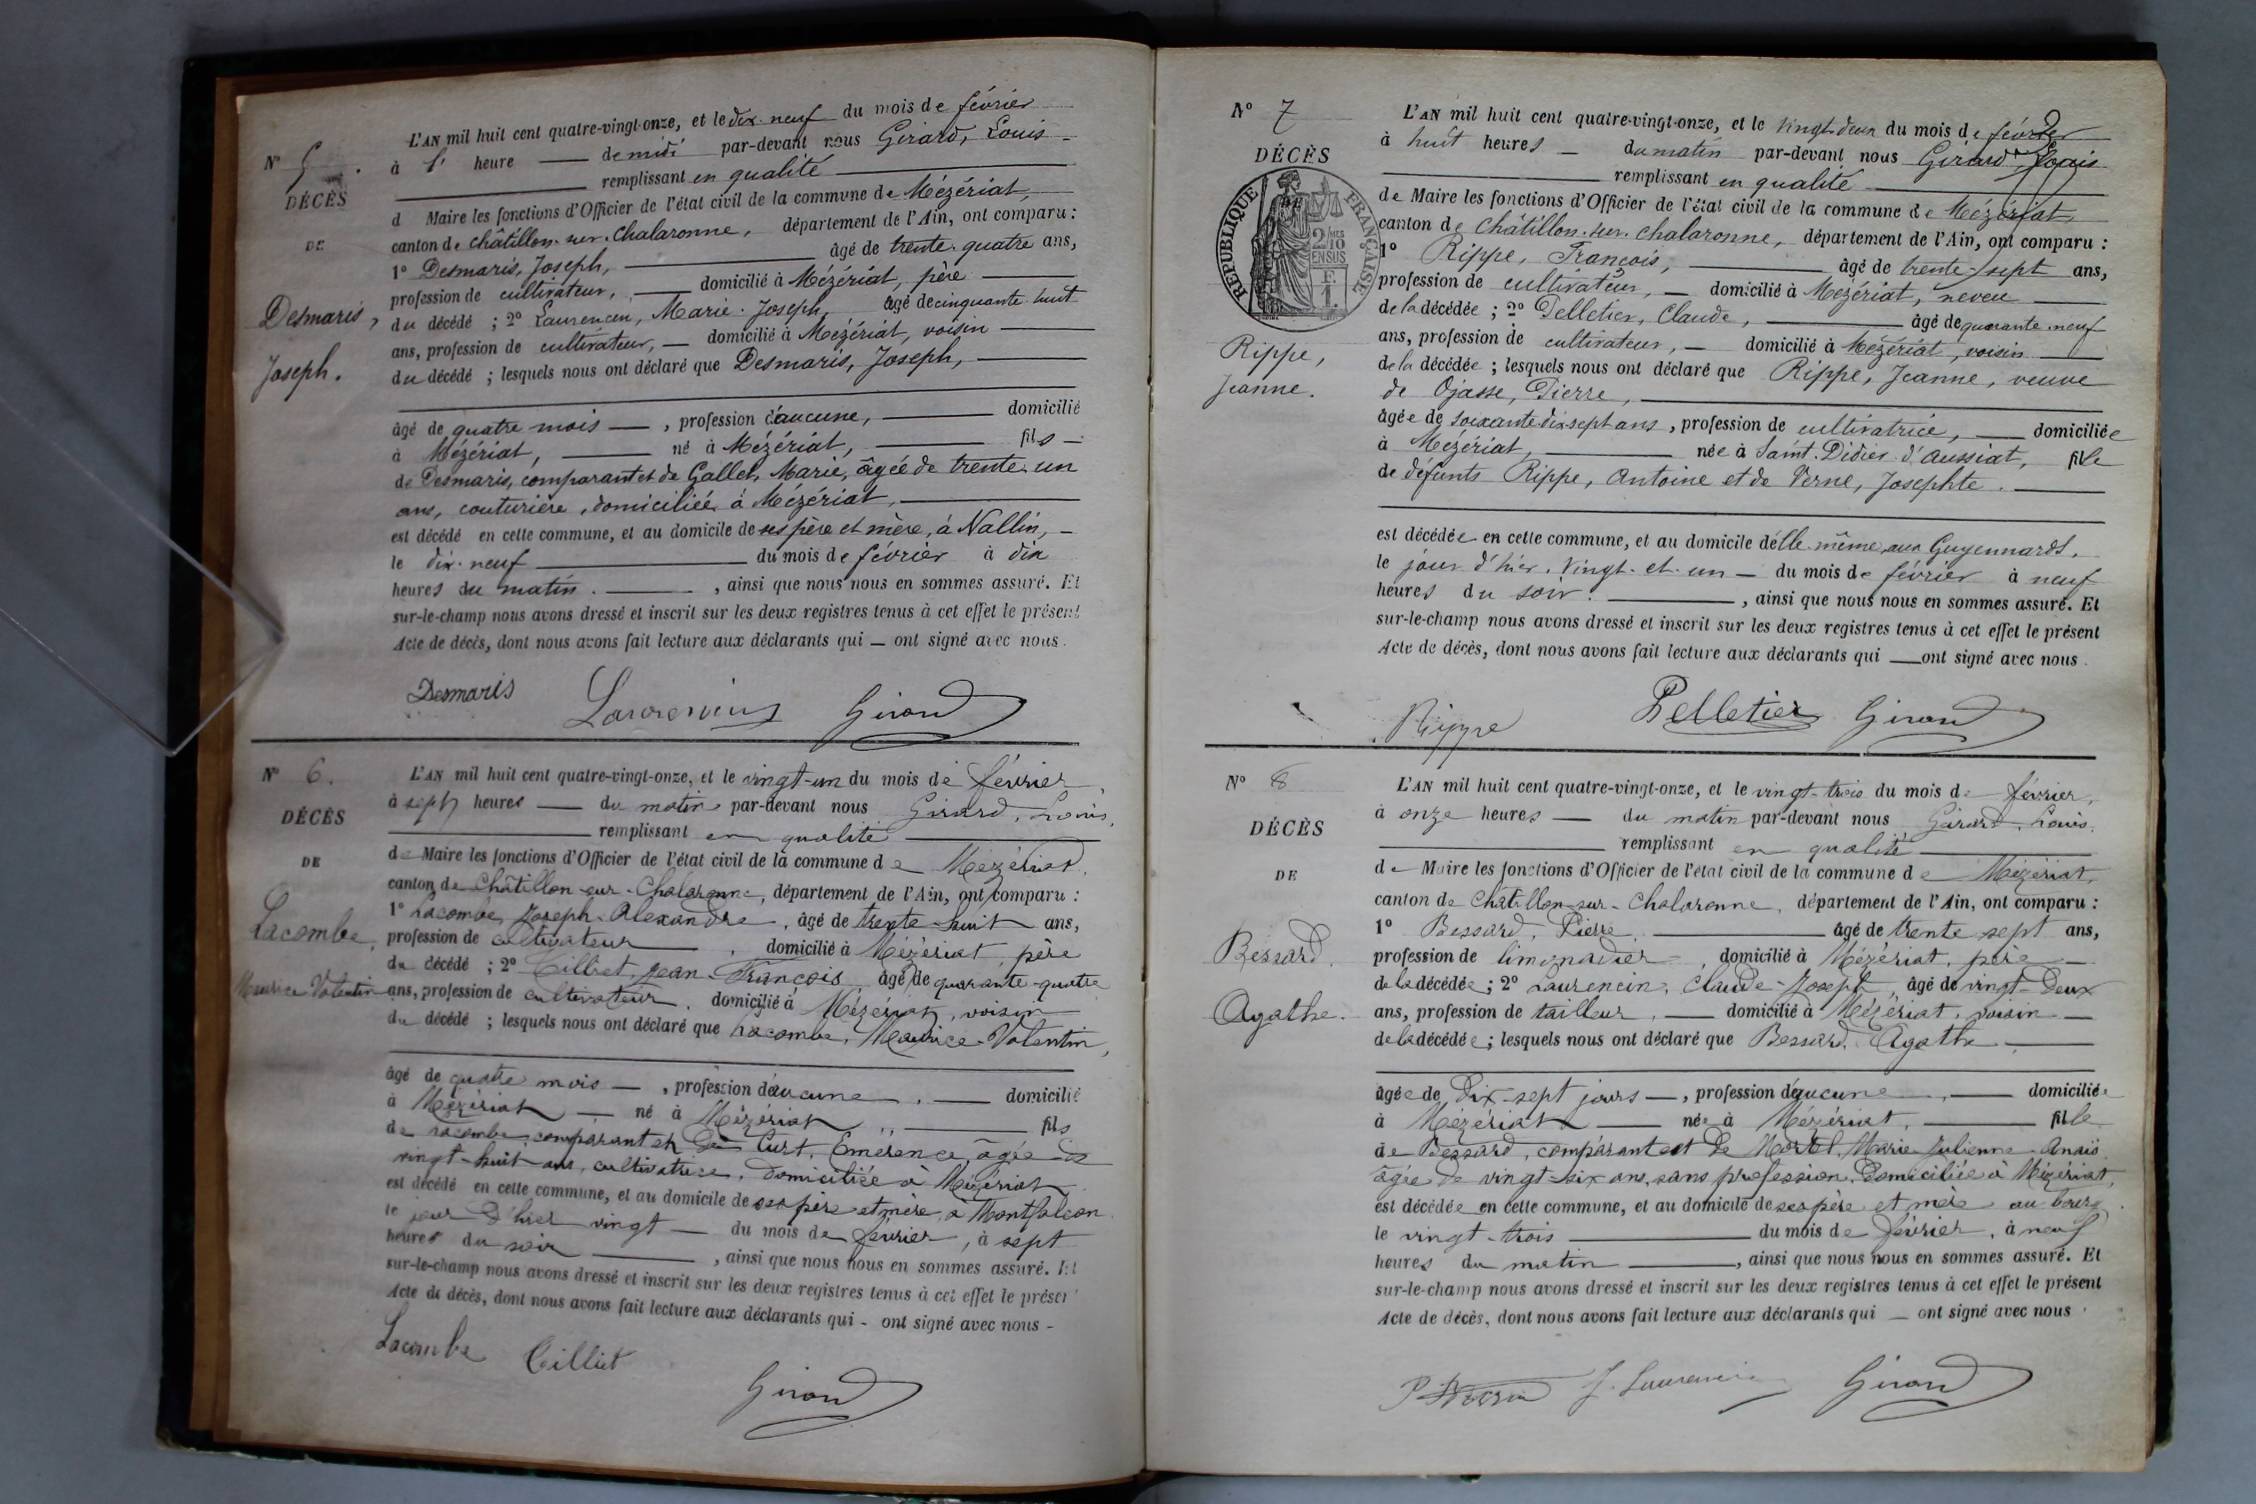 N° 5.
DÉCÈS
DE
Desmaris,
Joseph.
L'AN mil huit cent quatre-vingt-onze, et le dix-neuf du mois de février
à l' heure — de midi par-devant nous Girard, Louis
remplissant en qualité
d Maire les fonctions d'Officier de l'état civil de la commune de Mézériat,
canton de Châtillon-sur-Chalaronne, département de l'Ain, ont comparu :
1° Desmaris, Joseph, — âgé de trente-quatre ans,
profession de cultivateur, — domicilié à Mézériat, père
du décédé ; 2° Laurencin, Marie-Joseph, âgé de cinquante-huit
ans, profession de cultivateur, — domicilié à Mézériat, voisin
du décédé ; lesquels nous ont déclaré que Desmaris, Joseph,
âgé de quatre mois —, profession d'aucune, — domicilié
à Mézériat, — né à Mézériat, — fils
de Desmaris, comparant et de Gallet, Marie, âgée de trente-un
ans, couturière, domiciliée à Mézériat,
est décédé en cette commune, et au domicile de ses père et mère, à Nallin,
le dix-neuf — du mois de février à dix
heures du matin. —, ainsi que nous nous en sommes assuré. Et
sur-le-champ nous avons dressé et inscrit sur les deux registres tenus à cet effet le présent
Acte de décès, dont nous avons fait lecture aux déclarants qui — ont signé avec nous.
Desmaris Laurencin Girard
N° 6.
DÉCÈS
DE
Lacombe,
Maurice Valentin
L'AN mil huit cent quatre-vingt-onze, et le vingt-un du mois de février
à sept heures — du matin par-devant nous Girard, Louis,
remplissant en qualité
de Maire les fonctions d'Officier de l'état civil de la commune de Mézériat,
canton de Châtillon-sur-Chalaronne, département de l'Ain, ont comparu :
1° Lacombe, Joseph-Alexandre, âgé de trente-huit ans,
profession de cultivateur —, domicilié à Mézériat, père
du décédé ; 2° Tilliet, Jean-François, âgé de quarante-quatre
ans, profession de cultivateur, domicilié à Mézériat, voisin
du décédé ; lesquels nous ont déclaré que Lacombe, Maurice-Valentin,
âgé de quatre mois —, profession d'aucune, — domicilié
à Mézériat — né à Mézériat, — fils
de Lacombe, comparant et de Curt, Emérence, âgée de
vingt-huit ans, cultivatrice, domiciliée à Mézériat
est décédé en cette commune, et au domicile de ses père et mère, à Montfalcon
le jour d'hier vingt — du mois de février, à sept
heures du soir —, ainsi que nous nous en sommes assuré. Et
sur-le-champ nous avons dressé et inscrit sur les deux registres tenus à cet effet le présent
Acte de décès, dont nous avons fait lecture aux déclarants qui - ont signé avec nous -
Lacombe Tilliet
Girard
N° 7
DÉCÈS
RÉPUBLIQUE FRANÇAISE
2/10
EN SUS
F.
1.
Rippe,
Jeanne.
L'AN mil huit cent quatre-vingt-onze, et le vingt-deux du mois de février
à huit heures — du matin par-devant nous Girard, Louis
remplissant en qualité
de Maire les fonctions d'Officier de l'état civil de la commune de Mézériat,
canton de Châtillon-sur-Chalaronne, département de l'Ain, ont comparu :
1° Rippe, François, — âgé de trente-sept ans,
profession de cultivateur, — domicilié à Mézériat, neveu
de la décédée ; 2° Pelletier, Claude, — âgé de quarante-neuf
ans, profession de cultivateur, — domicilié à Mézériat, voisin
de la décédée ; lesquels nous ont déclaré que Rippe, Jeanne, veuve
de Ojasse, Pierre,
âgée de soixante-dix-sept ans, profession de cultivatrice, — domiciliée
à Mézériat, — née à Saint-Didier-d'Aussiat, fille
de défunts Rippe, Antoine et de Verne, Josephte.
est décédée en cette commune, et au domicile d'elle-même, aux Guyennards,
le jour d'hier, vingt-et-un — du mois de février à neuf
heures du soir. —, ainsi que nous nous en sommes assuré. Et
sur-le-champ nous avons dressé et inscrit sur les deux registres tenus à cet effet le présent
Acte de décès, dont nous avons fait lecture aux déclarants qui — ont signé avec nous.
Rippe Pelletier Girard
N° 8
DÉCÈS
DE
Bessard,
Agathe.
L'AN mil huit cent quatre-vingt-onze, et le vingt-trois du mois de février,
à onze heures — du matin par-devant nous Girard, Louis.
remplissant en qualité
de Maire les fonctions d'Officier de l'état civil de la commune de Mézériat,
canton de Châtillon-sur-Chalaronne, département de l'Ain, ont comparu :
1° Bessard, Pierre, — âgé de trente-sept ans,
profession de limonadier —, domicilié à Mézériat, père —
de la décédée ; 2° Laurencin, Claude-Joseph, âgé de vingt-deux
ans, profession de tailleur, — domicilié à Mézériat, voisin —
de la décédée ; lesquels nous ont déclaré que Bessard, Agathe
âgée de dix-sept jours —, profession d'aucune, — domiciliée
à Mézériat — née à Mézériat, — fille
de Bessard, comparant et de Morel, Marie-Julienne-Anaïs
âgée de vingt-six ans, sans profession, domiciliée à Mézériat,
est décédée en cette commune, et au domicile de ses père et mère au bourg
le vingt-trois — du mois de février, à neuf
heures du matin —, ainsi que nous nous en sommes assuré. Et
sur-le-champ nous avons dressé et inscrit sur les deux registres tenus à cet effet le présent
Acte de décès, dont nous avons fait lecture aux déclarants qui — ont signé avec nous
J. Laurencin Girard